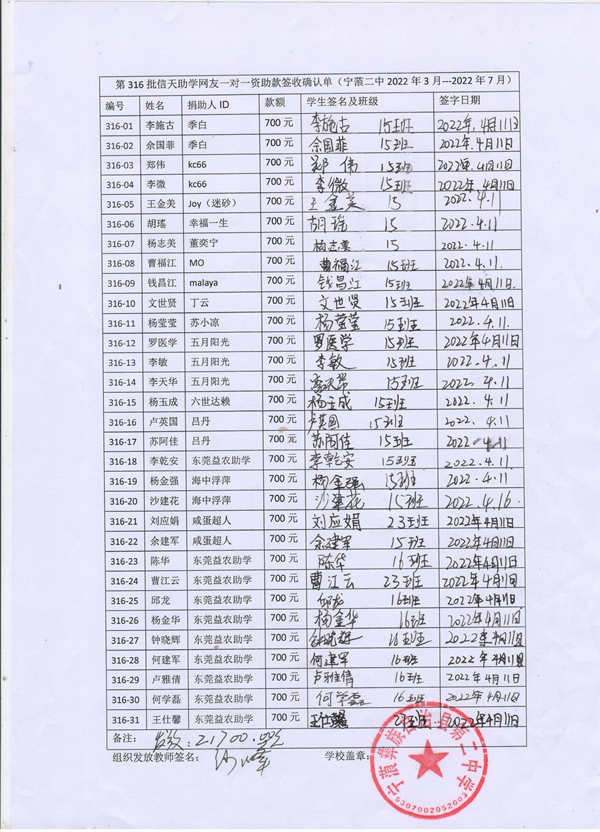 第 316 批信天助学网友一对一资助款签收确认单（宁蒗二中 2022 年 3 月---2022 年 7 月）
编号 姓名 捐助人 ID 款额 学生签名及班级 签字日期
316-01 李施古 季白 700 元 李施古 15班 2022年.4月11日
316-02 余国菲 季白 700 元 余国菲 15班 2022年.4月11日
316-03 郑伟 kc66 700 元 郑伟 15班 2022年.4月11日
316-04 李微 kc66 700 元 李微 15班 2022年4月11日
316-05 王金美 Joy（迷砂） 700 元 王金美 15 2022.4.11
316-06 胡瑤 幸福一生 700 元 胡瑤 15 2022.4.11
316-07 杨志美 董奕宁 700 元 杨志美 15 2022.4.11
316-08 曹福江 MO 700 元 曹福江 15班 2022.4.11
316-09 钱昌江 malaya 700 元 钱昌江 15班 2022年4月11日.
316-10 文世贤 丁云 700 元 文世贤 15班 2022年4月11日
316-11 杨莹莹 苏小凉 700 元 杨莹莹 15班 2022.4.11.
316-12 罗医学 五月阳光 700 元 罗医学 15班 2022年4月11日
316-13 李敏 五月阳光 700 元 李敏 15班 2022.4.11
316-14 李天华 五月阳光 700 元 15班 2022.4.11
316-15 杨玉成 六世达赖 700 元 杨玉成 15班 2022.4.11
316-16 卢英国 吕丹 700 元 卢英国 15班 2022.4.11
316-17 苏阿佳 吕丹 700 元 苏阿佳 15班 2022 4.11
316-18 李乾安 东莞益农助学 700 元 李乾安 15班 2022.4.11
316-19 杨金强 海中浮萍 700 元 杨金强 15班 2022.4.11
316-20 沙建花 海中浮萍 700 元 沙建花 15班 2022.4.16
316-21 刘应娟 咸蛋超人 700 元 刘应娟 23班 2022年4月11日
316-22 余建军 咸蛋超人 700 元 余建军 15班 2022年4月11日
316-23 陈华 东莞益农助学 700 元 陈华 16班 2022年4月11日
316-24 曹江云 东莞益农助学 700 元 曹江云 23班 2022年4月11日
316-25 邱龙 东莞益农助学 700 元 邱龙 16班 2022年4月11日
316-26 杨金华 东莞益农助学 700 元 杨金华 16班 2022年4月11日
316-27 钟晓辉 东莞益农助学 700 元 钟晓辉 16班 2022年4月11日
316-28 何建军 东莞益农助学 700 元 何建军 16班 2022年4月11日
316-29 卢雅倩 东莞益农助学 700 元 卢雅倩 16班 2022年4月11日
316-30 何学磊 东莞益农助学 700 元 何学磊 16班 2022年4月11日
316-31 王仕馨 东莞益农助学 700 元 王仕馨 21班 2022年4月11日
备注： 21700.00元
组织发放教师签名： 学校盖章：
宁蒗彝族自治县第二中学
5307002052003